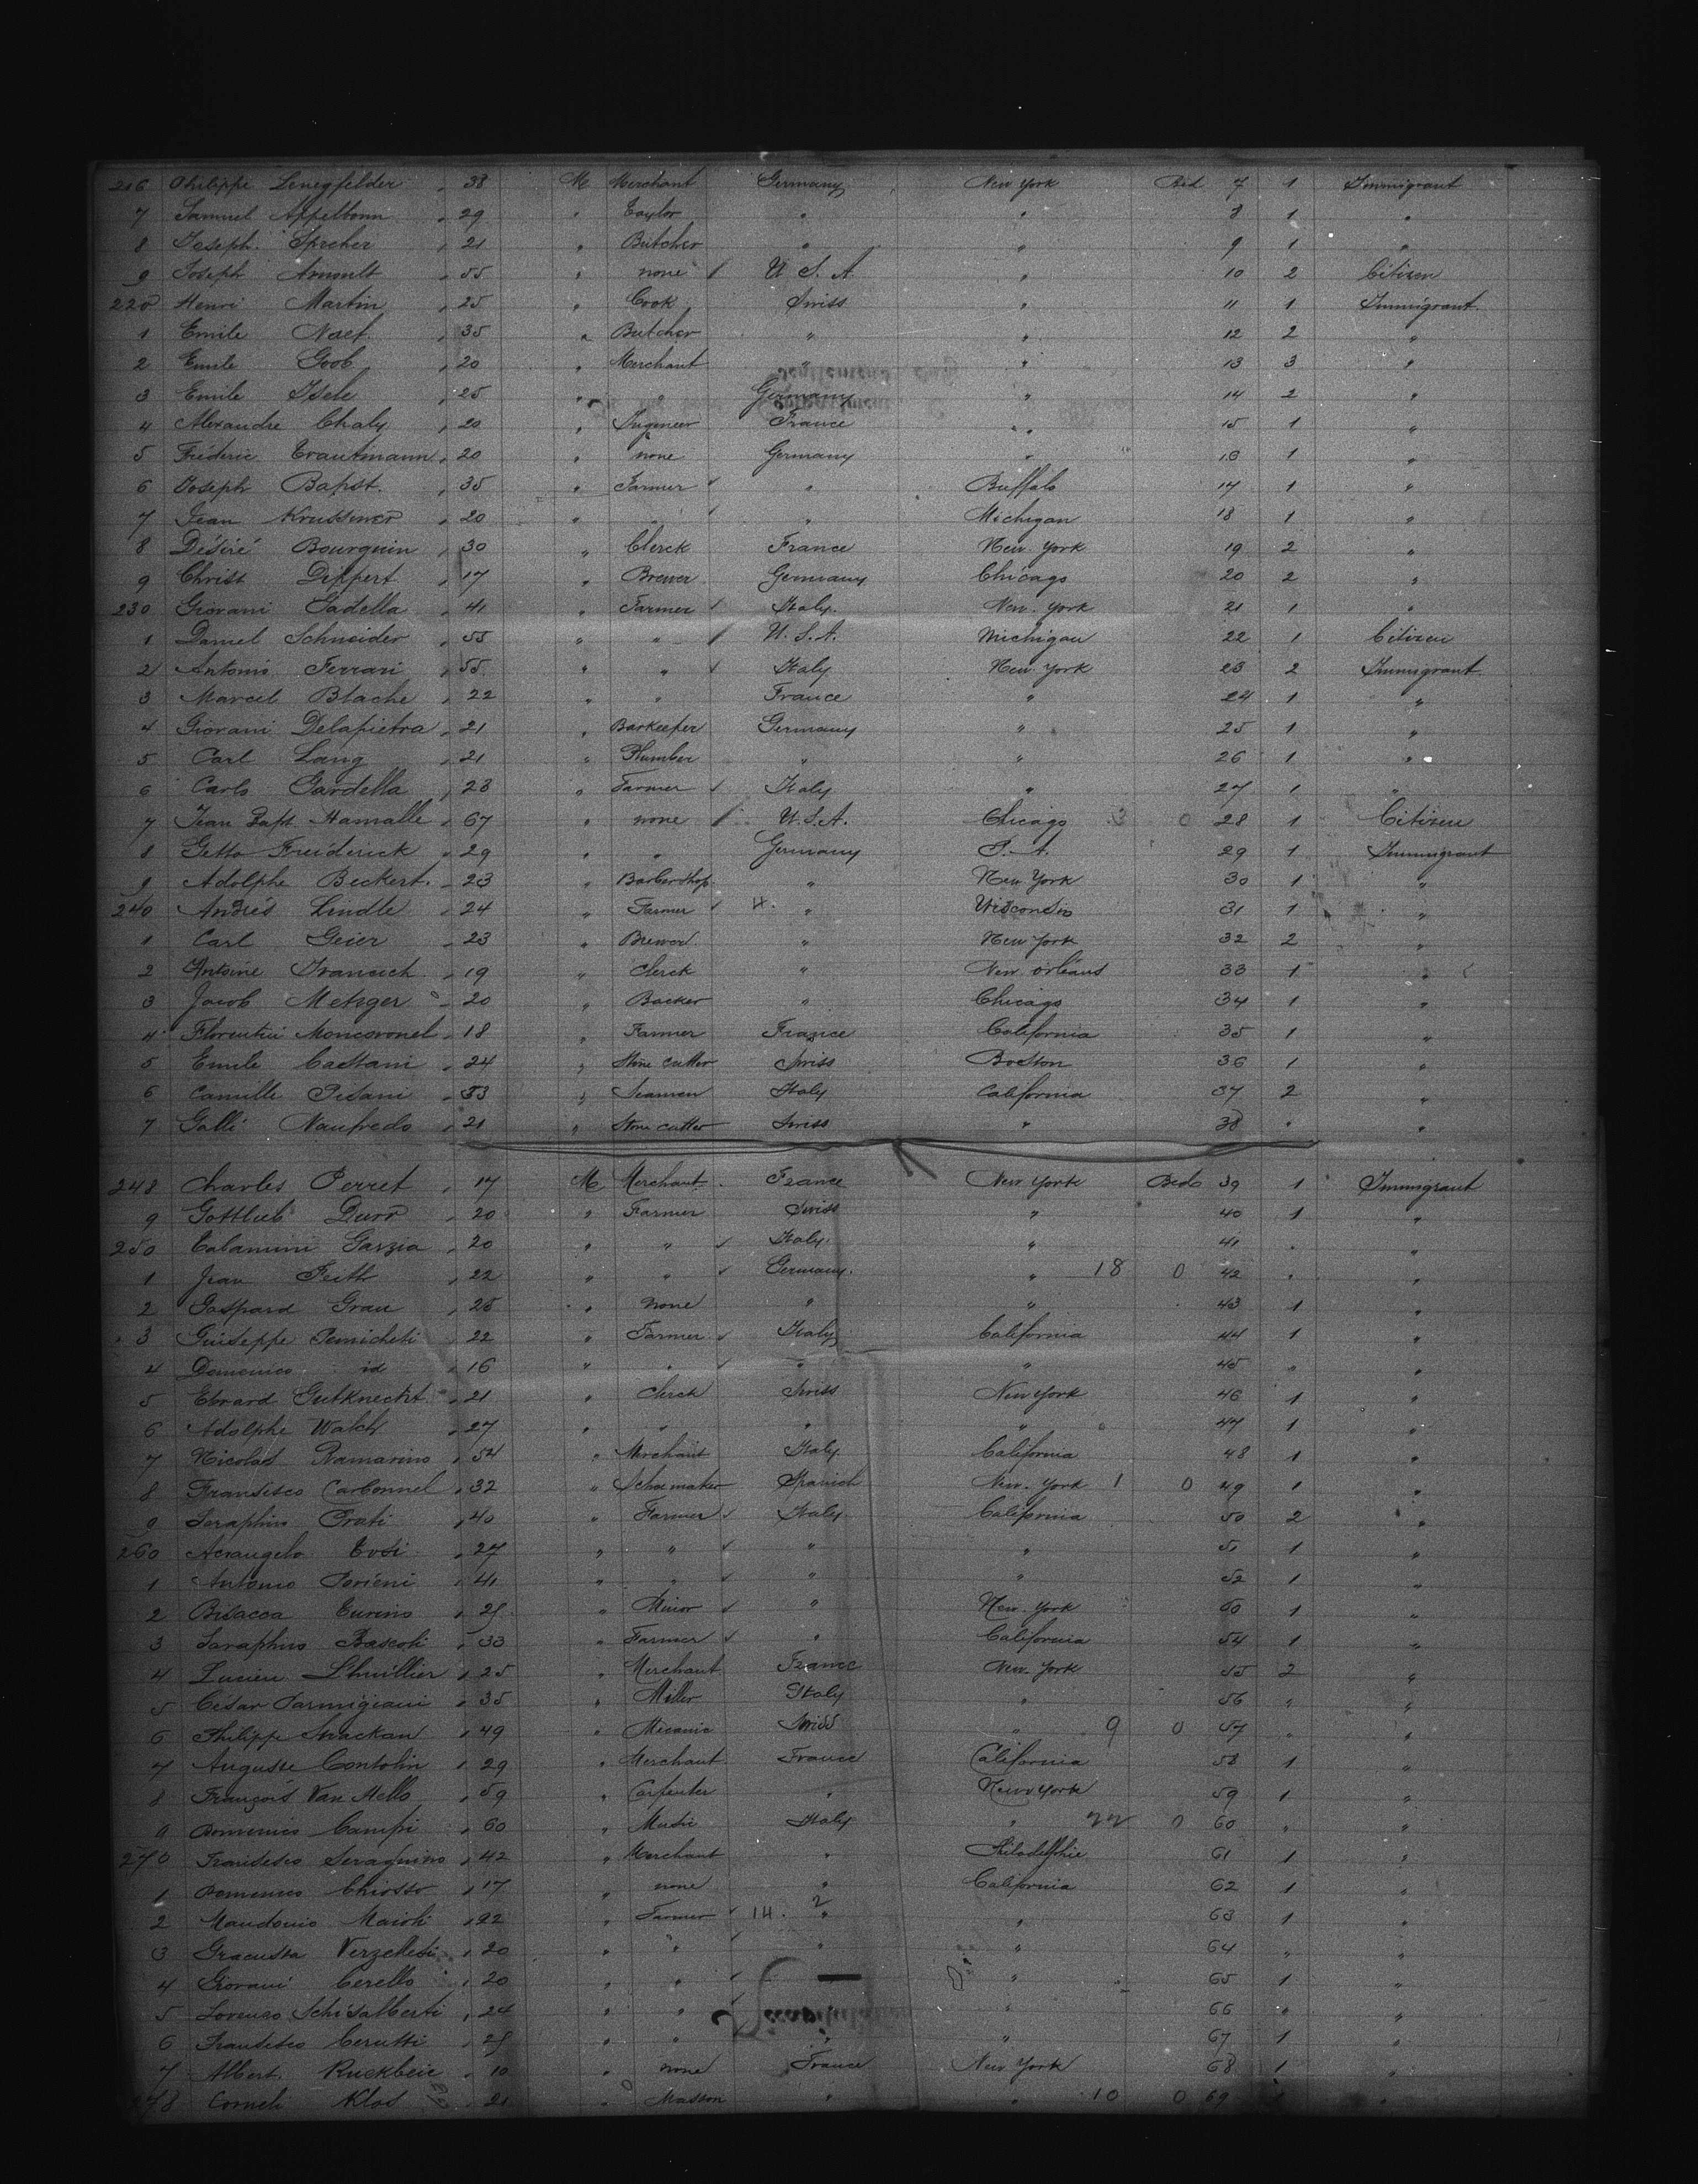 216 Philippe Lenegfelder " 38 M Merchant Germany New York Bed 7 1 Immigrant
7 Samuel Appelbonn " 29 " Taylor " " 8 1 "
8 Joseph Sprcher " 21 " Butcher " " 9 1 "
9 Joseph Arnoult " 55 " none U S. A. " 10 2 Citizen
220 Henri Martin " 25 " Cook Swiss " 11 1 Immigrant
1 Emile Naef " 35 " Butcher " " 12 2 "
2 Emile Goob " 20 " Merchant " " 13 3 "
3 Emile Isele " 25 " " Germany " 14 2 "
4 Alexandre Chaly " 20 " Ingineer France " 15 1 "
5 Fréderic Trautmann " 20 " none Germany " 16 1 "
6 Joseph Bapst. " 35 " Farmer " Buffalo 17 1 "
7 Jean " 20 " " " Michigan 18 1 "
8 Désiré Bourquin " 30 " Clerck France New York 19 2 "
9 Christ Dippert " 17 " Brewer Germany Chicago 20 2 "
230 Giovani Gadella " 41 " Farmer Italy. New York 21 1 "
1 Daniel Schneider " 55 " " U. S. A. Michigan 22 1 Citizen
2 Antonio Ferrari " 55 " " Italy New York 23 2 Immigrant
3 Marcel Blache " 22 " " France " 24 1 "
4 Giovani Delapietra " 21 " Barkeeper Germany " 25 1 "
5 Carl Lang " 21 " Plumber " " 26 1 "
6 Carlo Gardella " 28 " Farmer Italy " 27 1 "
7 Jean Bapt Hamalle " 67 " none U. S. A. Chicago 3 0 28 1 Citizen
8 Getto Freiderick " 29 " " Germany S. A. 29 1 Immigrant
9 Adolphe Beckert. " 23 " Barber Shop " New York 30 1 "
240 Andrés Lindle " 24 " Farmer 4. " Wisconsin 31 1 "
1 Carl Geier " 23 " Brewer " New York 32 2 "
2 Antoine " 19 " Clerck " New orléans 33 1 "
3 Jacob Metzger " 20 " Backer " Chicago 34 1 "
4 Florentin Moncoronel " 18 " Farmer France California 35 1 "
5 Emile Castani " 24 " Stone cutter Swiss Boston 36 1 "
6 Camille Pisani " 33 " Seamen Italy California 37 2 "
7 Galli Naufredo " 21 " Stone cutter Swiss " 38 " "
248 Charles Perret " 17 M Merchant France New York Beds 39 1 Immigrant
9 Gottlieb Durr " 20 " Farmer Swiss " 40 1 "
250 Calamini Garzia " 20 " " Italy. " 41 " "
1 Jean Feith " 22 " " Germany. " 18 0 42 " "
2 Gaspard Grau " 25 " none " " 43 1 "
3 Guiseppe Pemicheli " 22 " Farmer Italy California 44 1 "
4 Domenico id " 16 " " " " 45 " "
5 Edvard Gutknecht " 21 " Clerck Swiss New York 46 1 "
6 Adolphe Walch " 27 " " " " 47 1 "
7 Nicolas Ramarino " 54 " Merchant Italy California 48 1 "
8 Fransisco Carbonnel " 32 " Schoemaker Spanich New York 1 0 49 1 "
9 Seraphin Prati " 40 " Farmer Italy California 50 2 "
260 Acrangelo Tosi " 27 " " " " 51 1 "
1 Antonio Porieni " 41 " " " " 52 1 "
2 Bisacca Eurino " 25 " Minor " New York 60 1 "
3 Saraphino Bascoli " 33 " Farmer " California 54 1 "
4 Lucien Lhuillier " 25 " Merchant France New York 55 2 "
5 César Parmigiani " 35 " Miller Italy " 56 " "
6 Philipp Strackan " 49 " Mecanic Swiss " 9 0 57 " "
7 Auguste Contolin " 29 " Merchant France California 58 1 "
8 François Van Mello " 59 " Carpenter " New York 59 1 "
9 Domenico Campi " 60 " Music Italy " 22 0 60 " "
270 Fransisco Seraquino " 42 " Merchant " Philadelphie 61 1 "
1 Domenico Chiosso " 17 " none " California 62 1 "
2 Maudonio Maioli " 22 " Farmer 14. 2 " " 63 1 "
3 Gracusta Verzelesi " 20 " " " " 64 " "
4 Giovani Cerello " 20 " " " 65 1 "
5 Lorenzo Schisalberti " 24 " " " 66 " "
6 Fransisco Cerutti " 25 " " " " 67 1 "
7 Albert Ruckbeie " 10 " none France New York 68 1 "
278 Corneli Klos " 21 " Masson " " 10 0 69 1 "